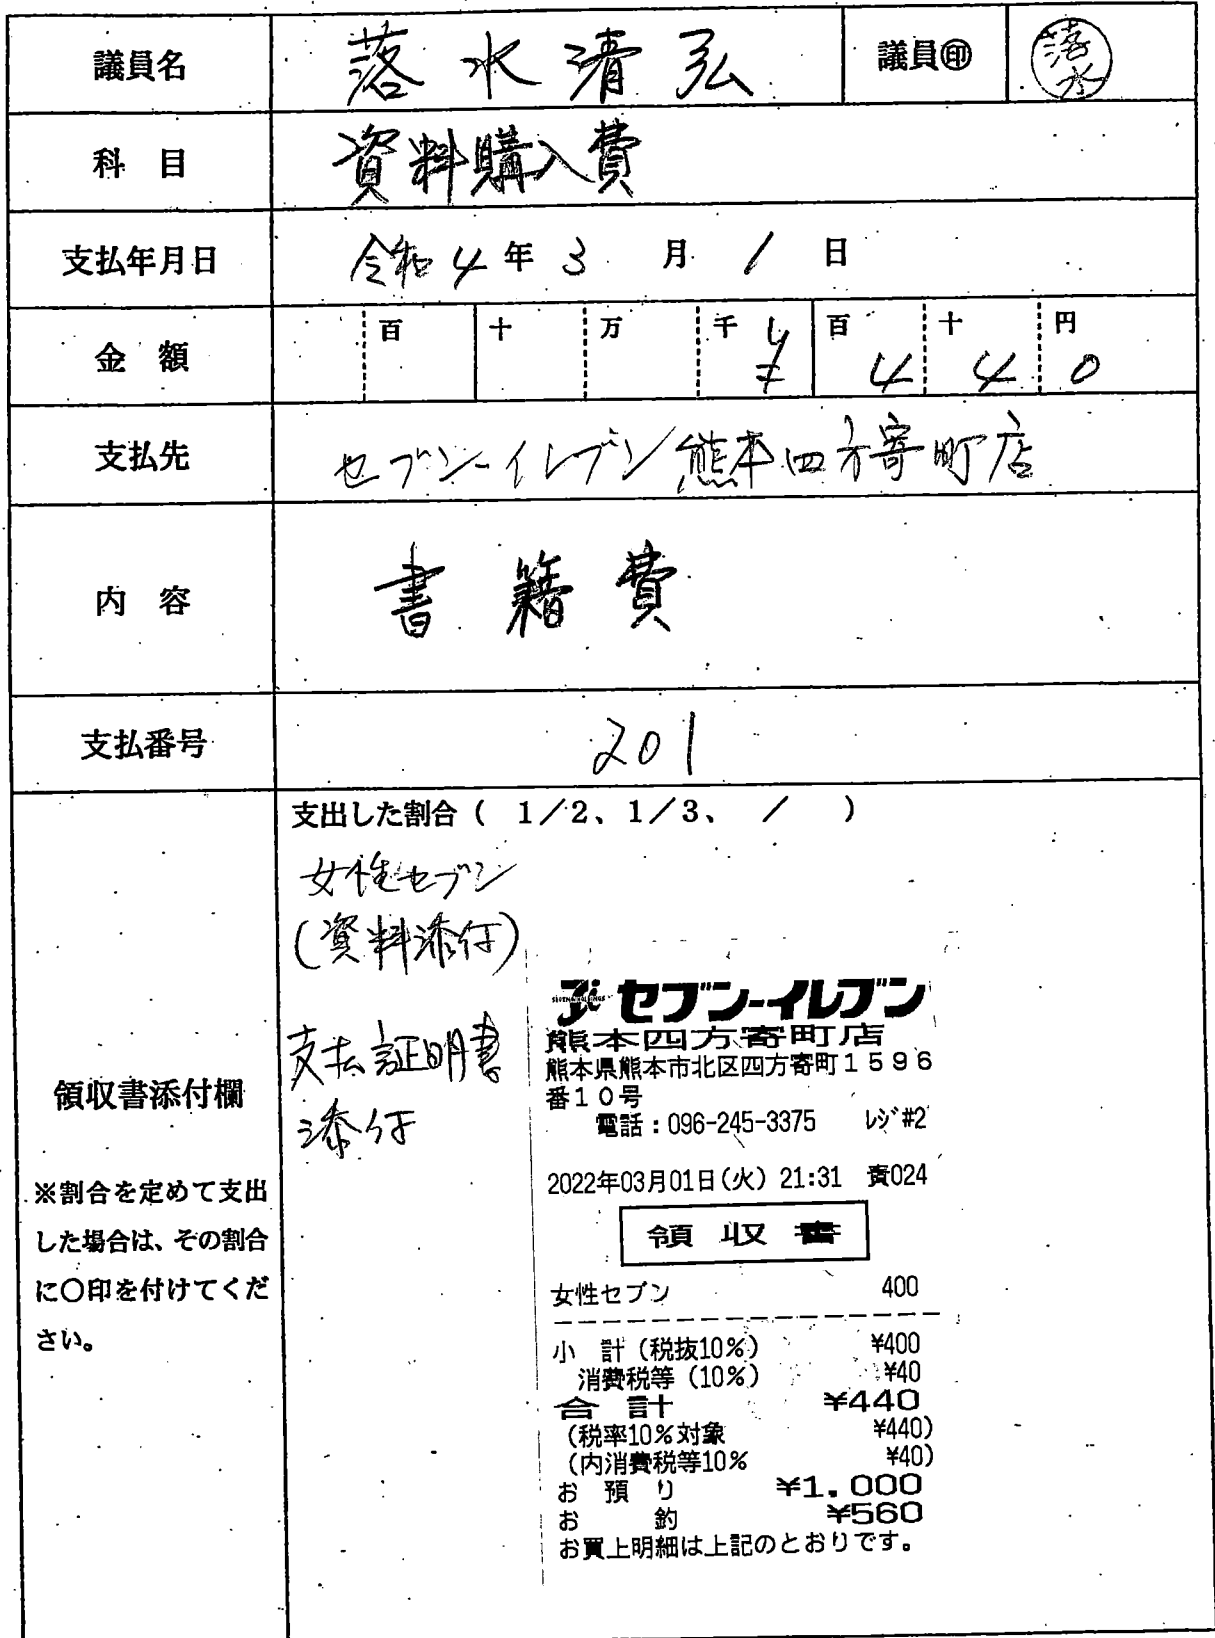 議員名 落水清弘 議員㊞ 落水
科 目 資料購入費
支払年月日 令和4年3月1日
金 額 百 十 万 千 ¥ 百 4 十 4 円 0
支払先 セブン-イレブン熊本四方寄町店
内 容 書籍費
支払番号 201
支出した割合( 1/2、1/3、 / )
女性セブン
(資料添付)
支払証明書
添付
領収書添付欄
※割合を定めて支出
した場合は、その割合
に〇印を付けてくだ
さい。
セブン-イレブン
熊本四方寄町店
熊本県熊本市北区四方寄町1596
番10号
電話:096-245-3375 レジ#2
2022年03月01日(火) 21:31 責024
領収書
女性セブン 400
小 計(税抜10%) ¥400
消費税等(10%) ¥40
合 計 ¥440
(税率10%対象 ¥440)
(内消費税等10% ¥40)
お 預 り ¥1,000
お 釣 ¥560
お買上明細は上記のとおりです。